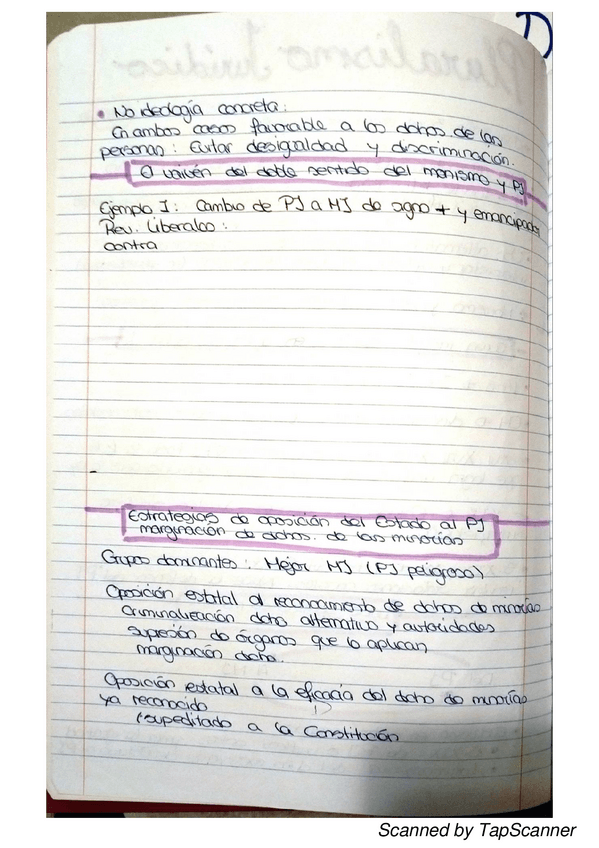 • No ideología concreta:
En ambos casos favorable a los dchos de las
personas: Evitar desigualdad y discriminación.
O vaivén del doble sentido del monismo y PJ
Ejemplo I: Cambio de PJ a MJ de signo + y emancipador
Rev. Liberales:
contra
Estrategias de oposición del Estado al PJ
marginación de dchos. de las minorías
Grupos dominantes: Mejor MJ (PJ peligroso)
Oposición estatal al reconocimiento de dchos de minorías
Criminalización dcho alternativo y autoridades
supresión de órganos que lo aplican
marginación dcho.
Oposición estatal a la eficacia del dcho de minorías
ya reconocido
supeditado a la Constitución
Scanned by TapScanner